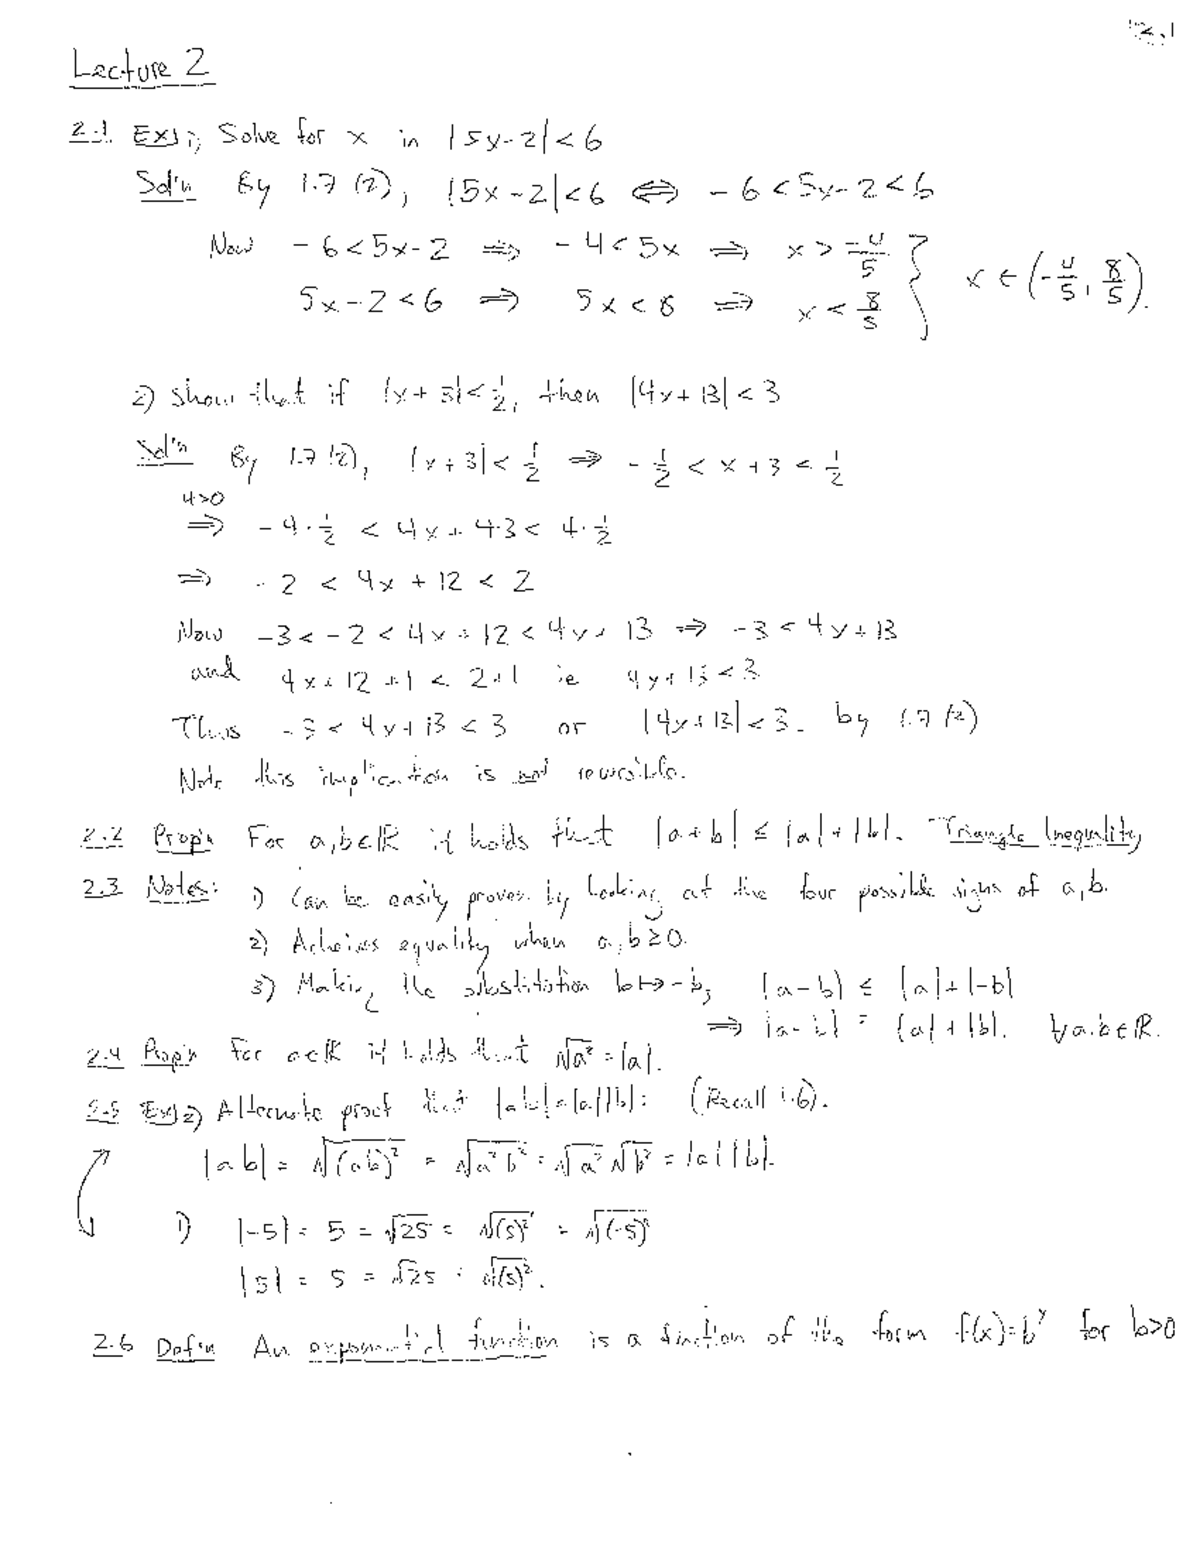 2.1
Lecture 2
2.1 Ex) 1) Solve for x in |5x-2| < 6
Sol'n By 1.7 (2), |5x-2| < 6 ⟺ -6 < 5x-2 < 6
Now -6 < 5x-2 ⟹ -4 < 5x ⟹ x > -4/5 } x ∈ (-4/5, 8/5).
5x-2 < 6 ⟹ 5x < 8 ⟹ x < 8/5
2) Show that if |x+3| < 1/2, then |4x+13| < 3
Sol'n By 1.7 (2), |x+3| < 1/2 ⟹ -1/2 < x+3 < 1/2
4>0
⟹ -4·1/2 < 4x + 4·3 < 4·1/2
⟹ -2 < 4x + 12 < 2
Now -3 < -2 < 4x + 12 < 4x + 13 ⟹ -3 < 4x + 13
and 4x + 12 + 1 < 2+1 ie 4x+13 < 3
Thus -3 < 4x+13 < 3 or |4x+13| < 3. by 1.7 (2)
Note this implication is not reversible.
2.2 Prop'n For a,b∈ℝ it holds that |a+b| ≤ |a|+|b|. Triangle Inequality
2.3 Notes: 1) Can be easily proven by looking at the four possible signs of a,b.
2) Acheives equality when a,b≥0.
3) Making the substitution b↦-b, |a-b| ≤ |a|+|-b|
⟹ |a-b| = |a|+|b|. ∀a,b∈ℝ.
2.4 Prop'n For a∈ℝ it holds that √a² = |a|.
2.5 Ex) 2) Alternate proof that |ab|=|a||b|: (Recall 1.6).
|ab| = √(ab)² = √a²b² = √a² √b² = |a||b|.
1) |-5| = 5 = √25 = √(5)² = √(-5)²
|5| = 5 = √25 = √(5)².
2.6 Def'n An exponential function is a function of the form f(x)=bˣ for b>0